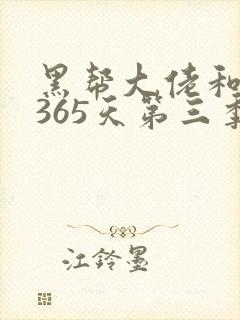 黑帮大佬和
365天第三季
江铃墨